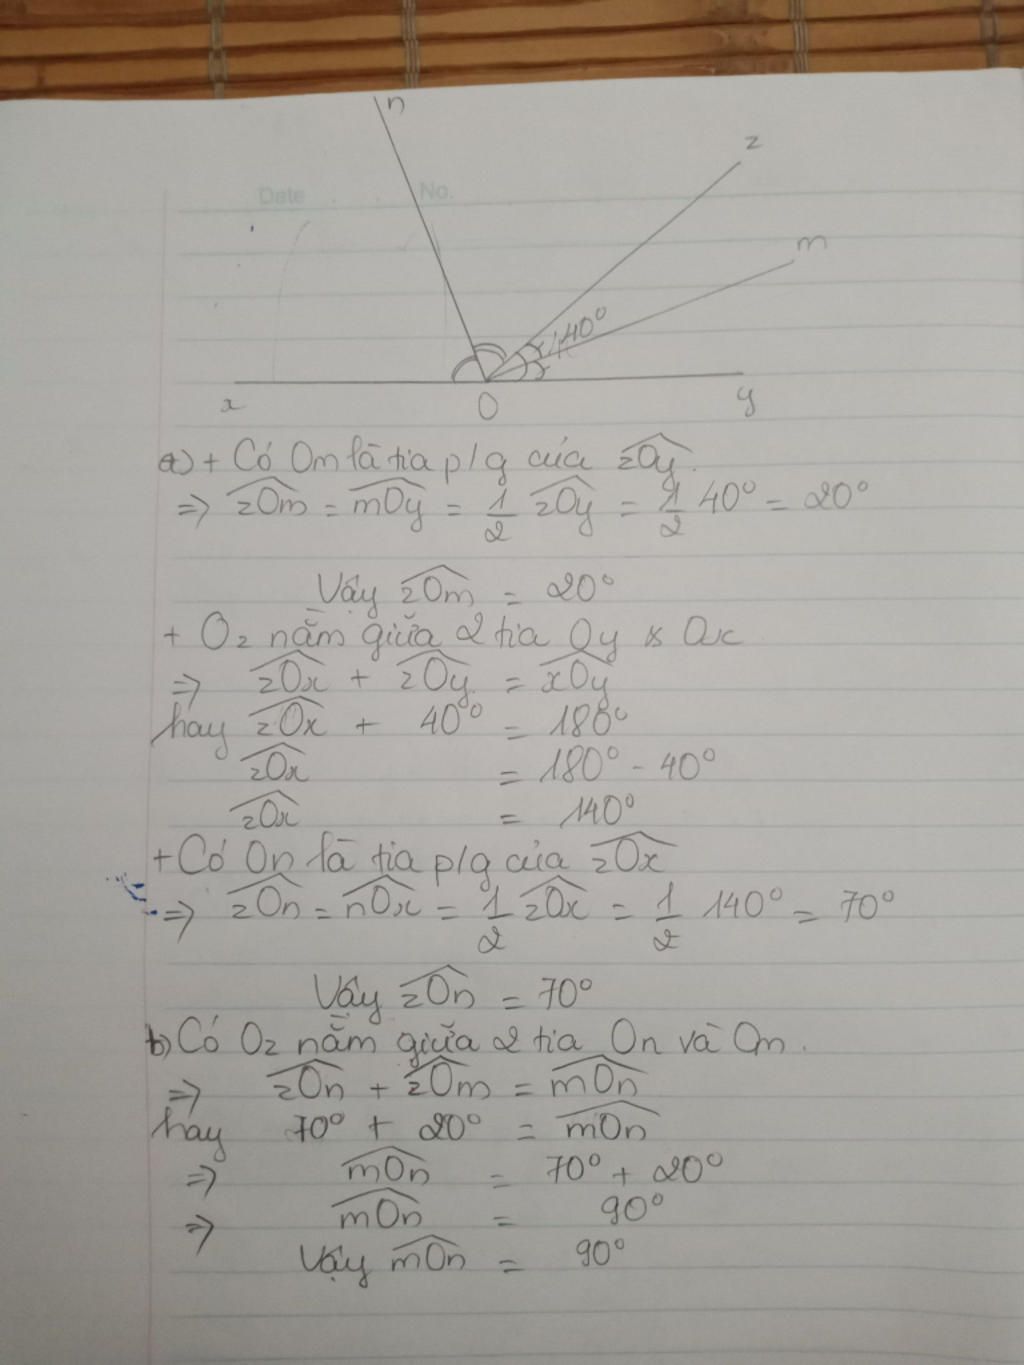 n
z
Date No.
m
40°
x O y
a) + Có Om là tia p/g của zOy.
=> zOm = mOy = 1/2 zOy = 1/2 40° = 20°
Vậy zOm = 20°
+ Oz nằm giữa 2 tia Oy & Ox
=> zOx + zOy = xOy
hay zOx + 40° = 180°
zOx = 180° - 40°
zOx = 140°
+ Có On là tia p/g của zOx
=> zOn = nOx = 1/2 zOx = 1/2 140° = 70°
Vậy zOn = 70°
b) Có Oz nằm giữa 2 tia On và Om.
=> zOn + zOm = mOn
hay 70° + 20° = mOn
=> mOn = 70° + 20°
=> mOn = 90°
Vậy mOn = 90°